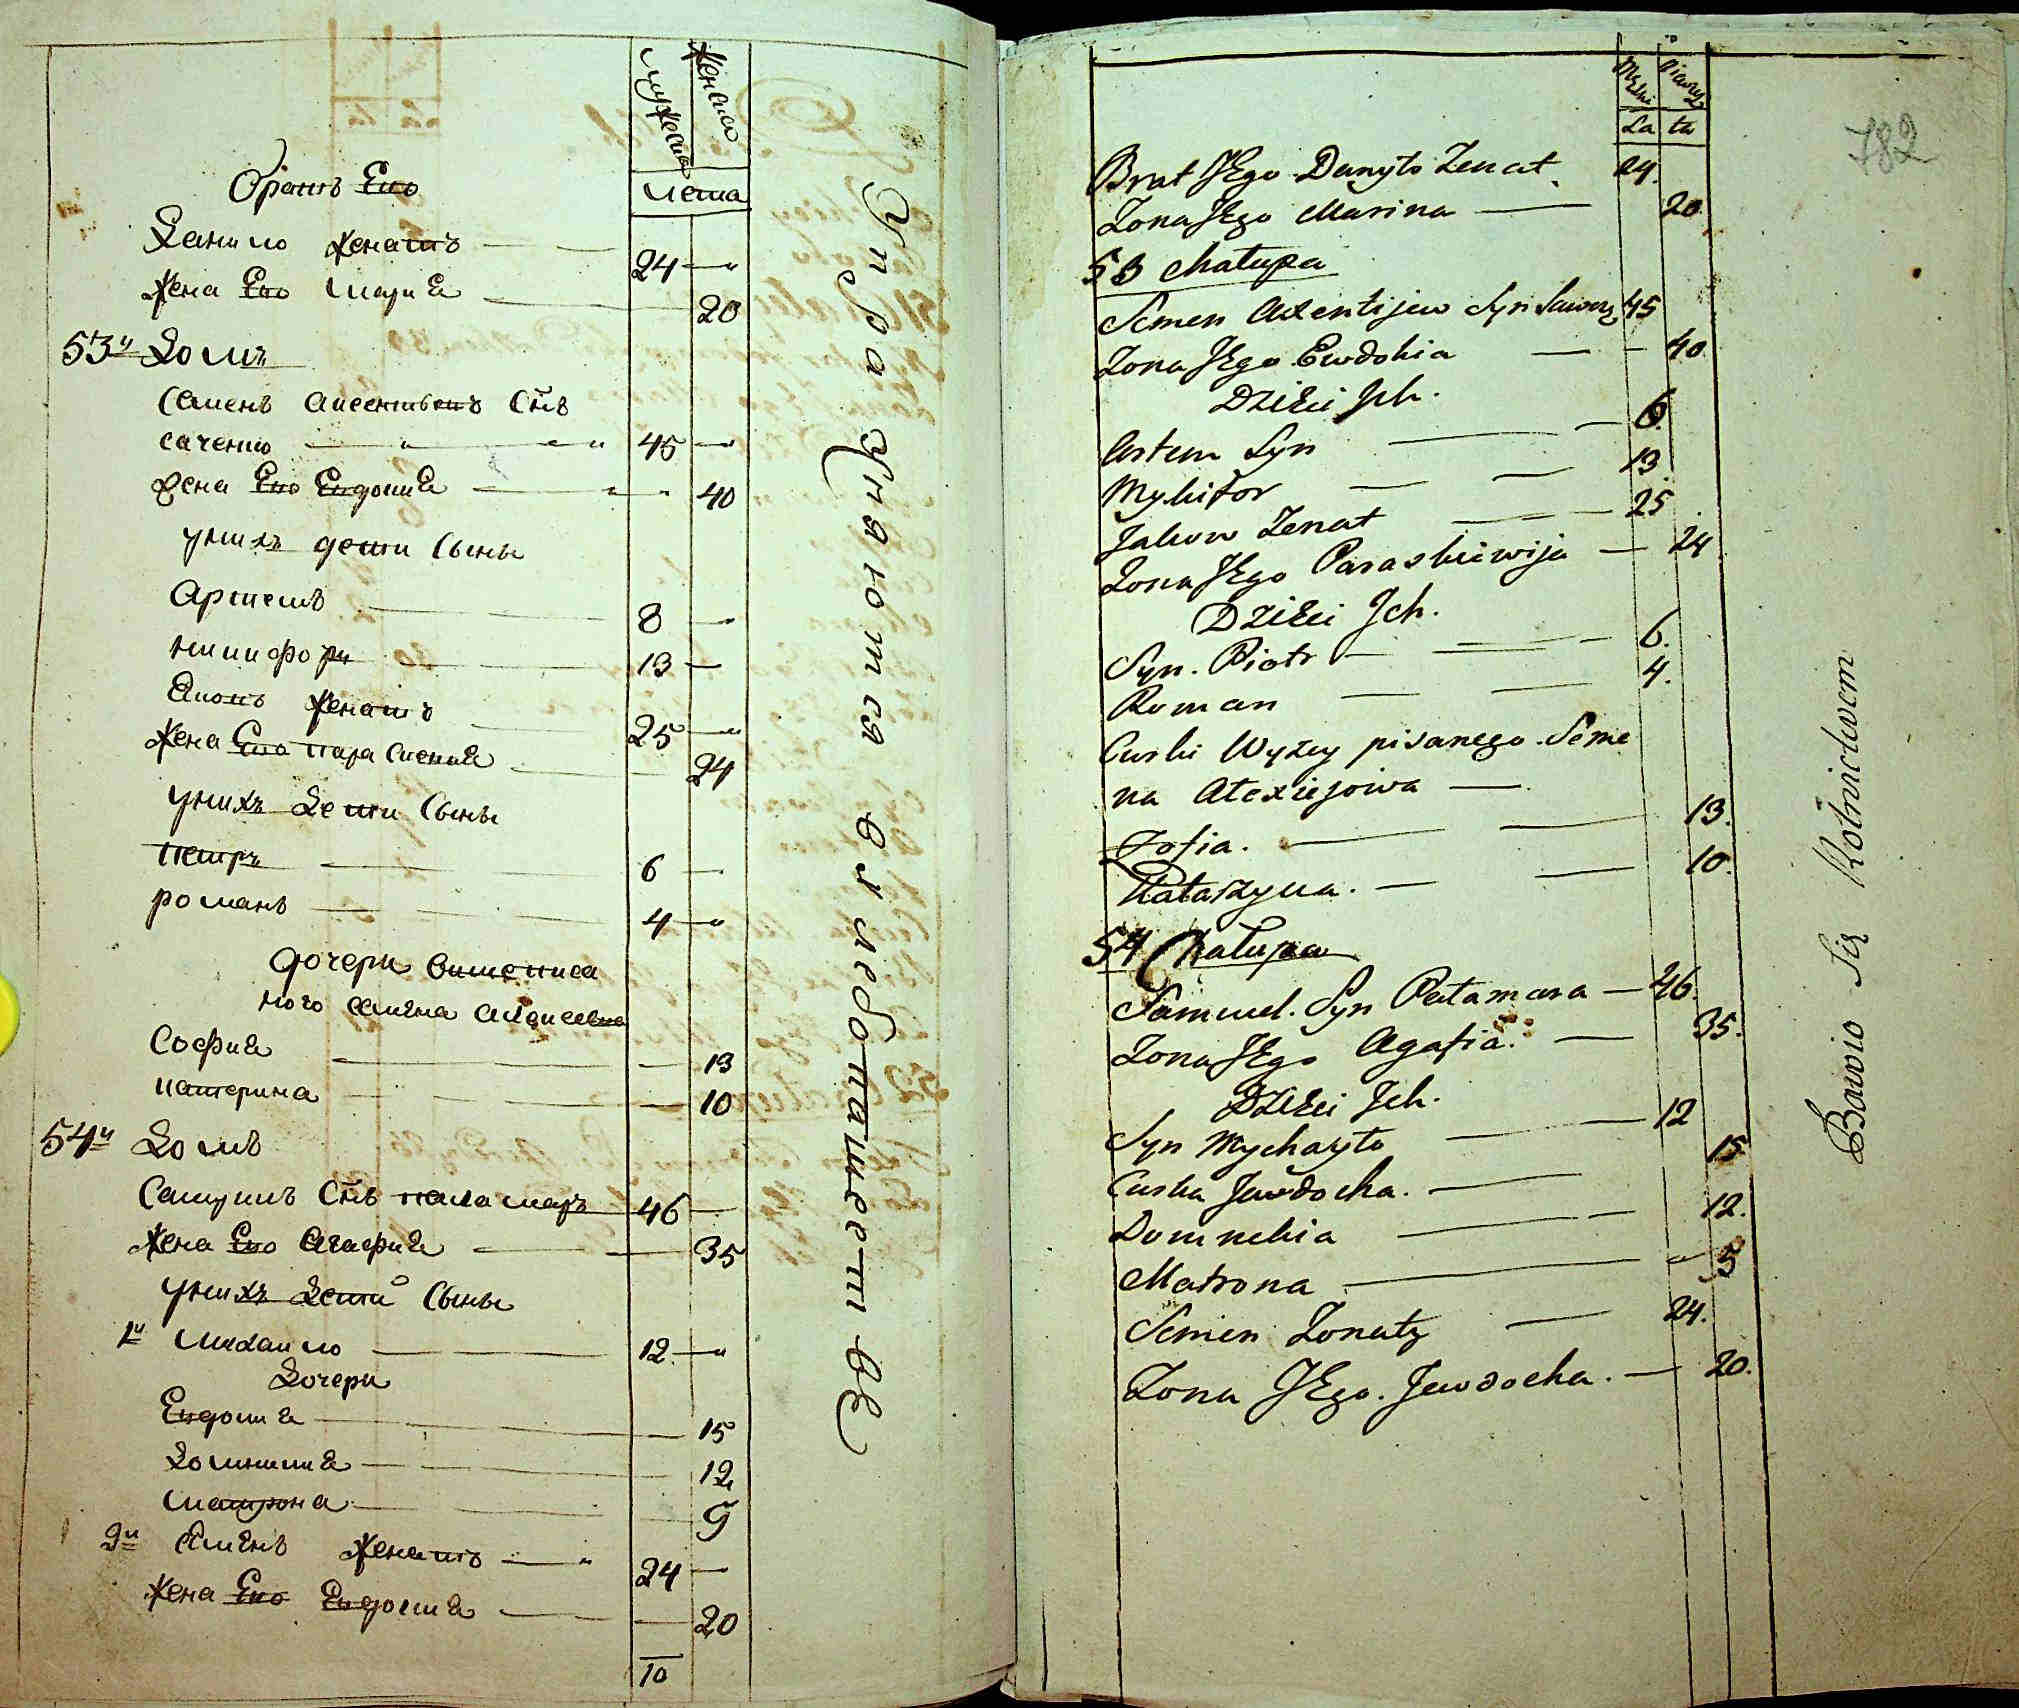 мужска женска
лета
братъ Его
Данило женатъ 24
жена Его Мария 20
53й Домъ
Семенъ Аксентьевъ Снъ
саченко 45
жена Его Евдокия 40
у них дети Сыны
Артемъ 8
никифоръ 13
Яковъ женатъ 25
жена Его параскевия 24
у нихъ дети Сыны
петръ 6
романъ 4
дочери вишеписа
ного семена алексеевна
София 13
катерина 10
54й Домъ
Самуилъ Снъ паламаръ 46
жена Его Агафия 35
у нихъ дети Сыны
1й михаило 12
дочери
Евдокия 15
Домникия 12
матрона 9
2й Семенъ женатъ 24
жена Его Евдокия 20
10
Упражняются в хлебопашестве
782
Męzki Białey
La ta
Brat JEgo Danyło Zenat 24.
Zona JEgo Marina 20
53 Chałupa
Semen Axentijew Syn 45
Zona JEgo Ewdokia 40
Dzieci Jch.
Artem Syn 6
Mykifor 13
Jakow Zenat 25
Zona JEgo Paraskiewija 24
Dzieci Jch.
Syn. Piotr 6.
Roman 4.
Curki Wyzey pisanego Seme
na Alexiejowa
Zofia. 13.
Katarzyna. 10.
54 Chałupa
Samuel. Syn Pałamara 46.
Zona JEgo Agafia. 35.
Dzieci Jch.
Syn Mychayło 12
Curka Jewdocha. 15
Domnekia 12.
Matrona 5
Semen Zonaty 24.
Zona JEgo. Jewdocha. 20.
Bawio Się Rolnictwem